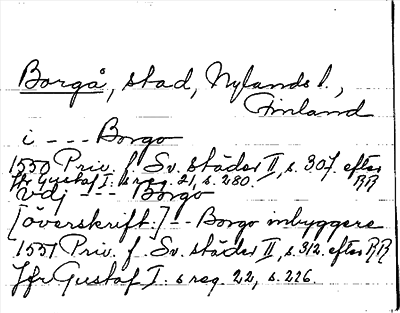 Borgå, stad, Nylands l.,
Finland
i - - - Borgo
1550 Priv. f. Sv. städer II, s. 307. efter RR
Jfr Gustaf I. s reg. 21, s. 280.
vdj - - - Borgo
[överskrift:] - - Borgo inbyggere
1551 Priv. f. Sv. städer II, s. 312. efter RR
Jfr Gustaf I. s reg. 22, s. 226.